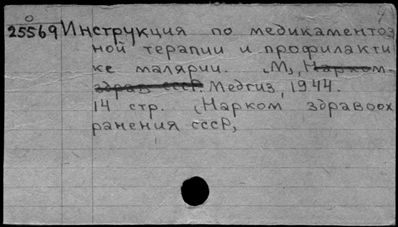 25569 Инструкция по медикаментоз
ной терапии и профилакти
ке малярии. М., Нарком-
здрав СССР. Медгиз, 1944.
14 стр. (Нарком здравоох
ранения СССР,